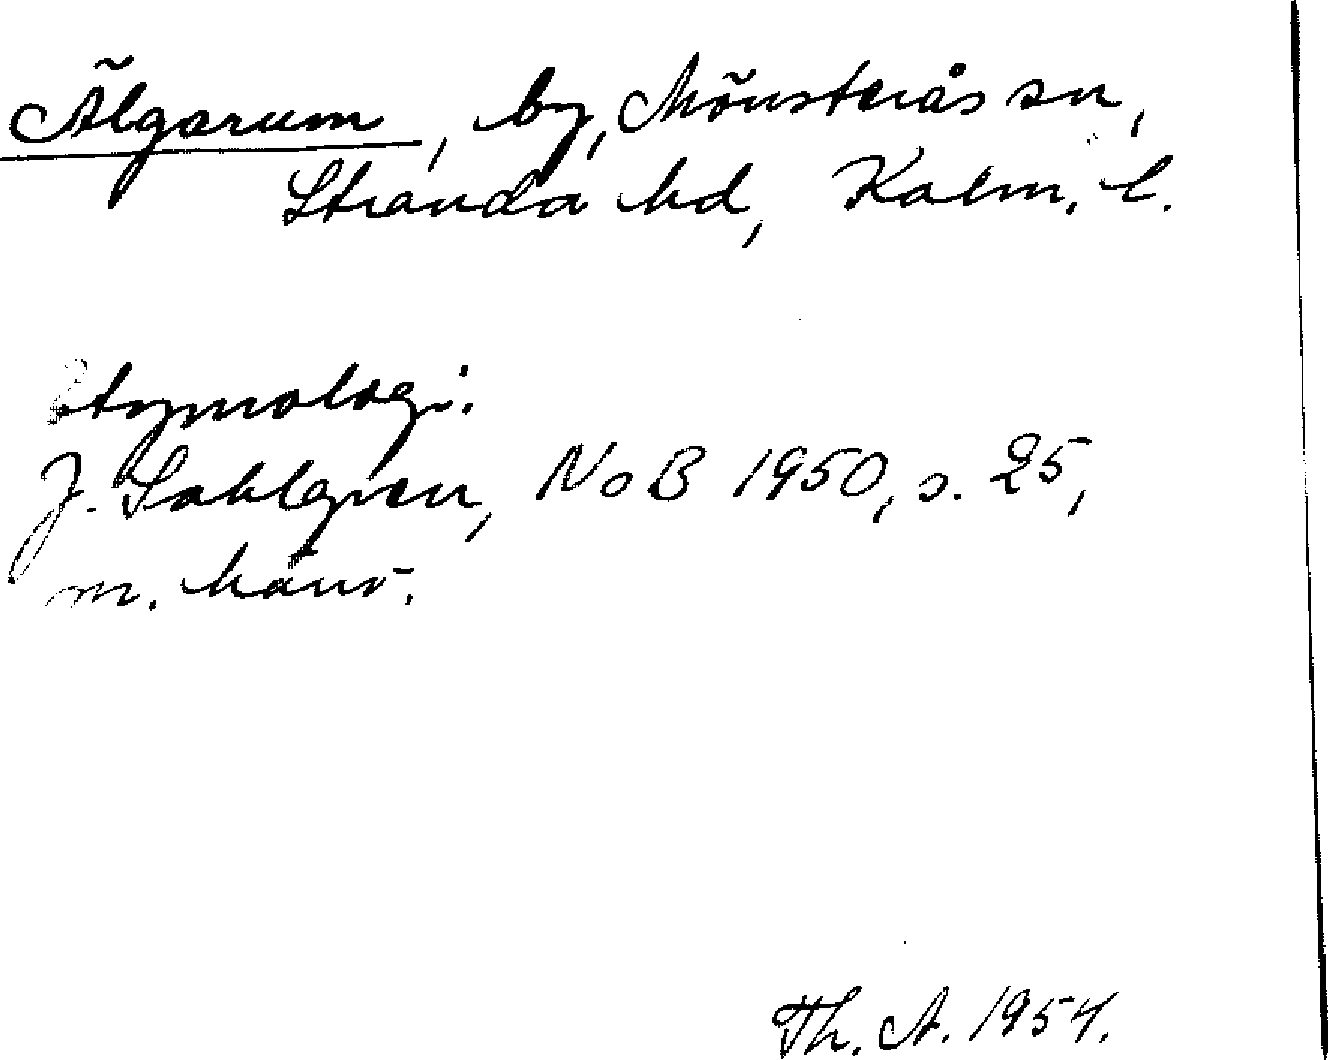 Älgarum, by, Mönsterås sn,
Stranda hd, Kalm. l.
Etymologi.
J. Sahlgren, NoB 1950, s. 25,
m. hänv.
Th. A. 1954.